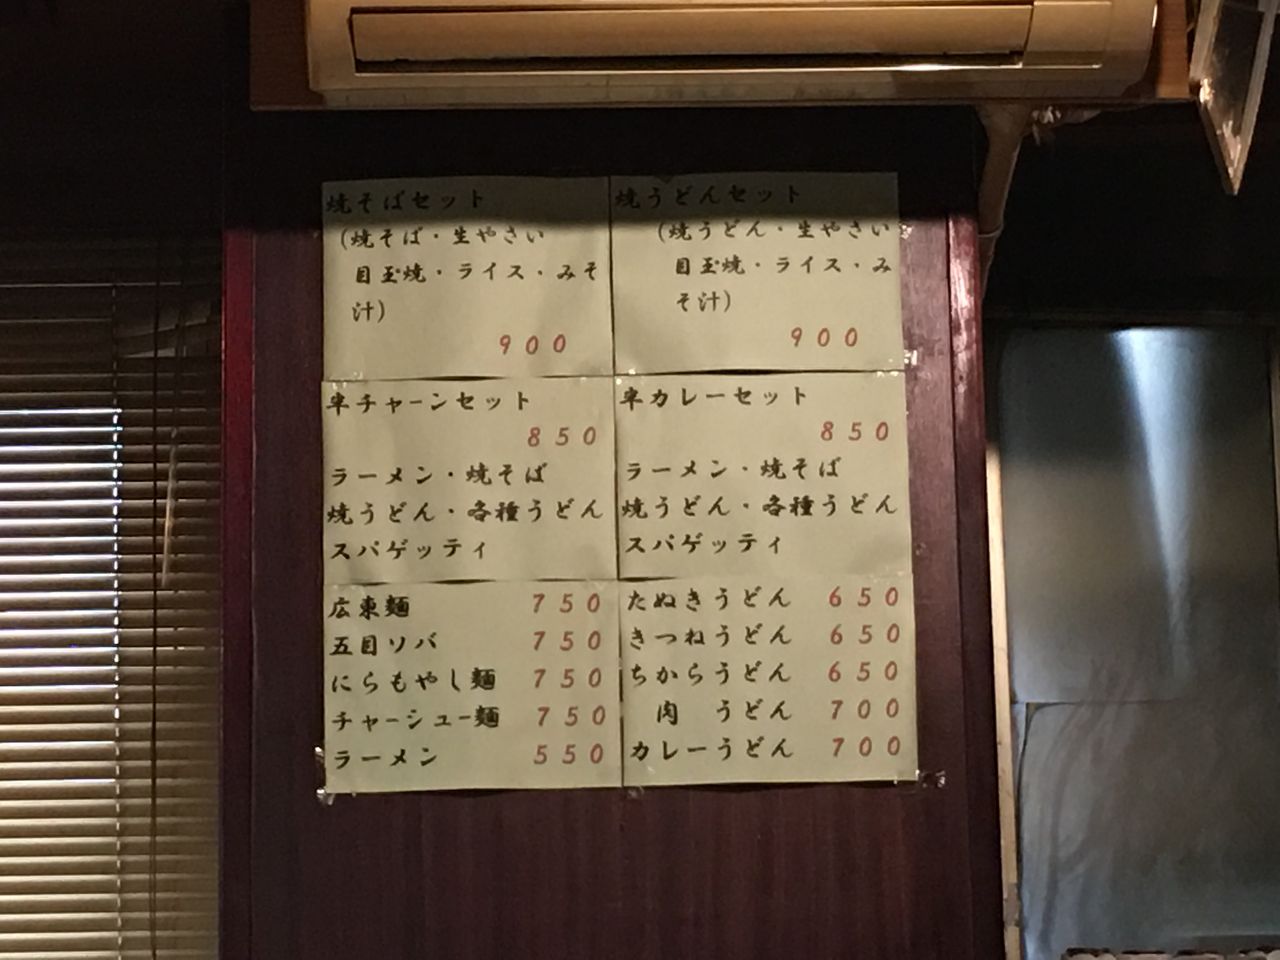 焼そばセット
(焼そば・生やさい
目玉焼・ライス・みそ
汁)
900
焼うどんセット
(焼うどん・生やさい
目玉焼・ライス・み
そ汁)
900
半チャーンセット
850
ラーメン・焼そば
焼うどん・各種うどん
スパゲッティ
半カレーセット
850
ラーメン・焼そば
焼うどん・各種うどん
スパゲッティ
広東麺 750
五目ソバ 750
にらもやし麺 750
チャーシュー麺 750
ラーメン 550
たぬきうどん 650
きつねうどん 650
ちからうどん 650
肉 うどん 700
カレーうどん 700